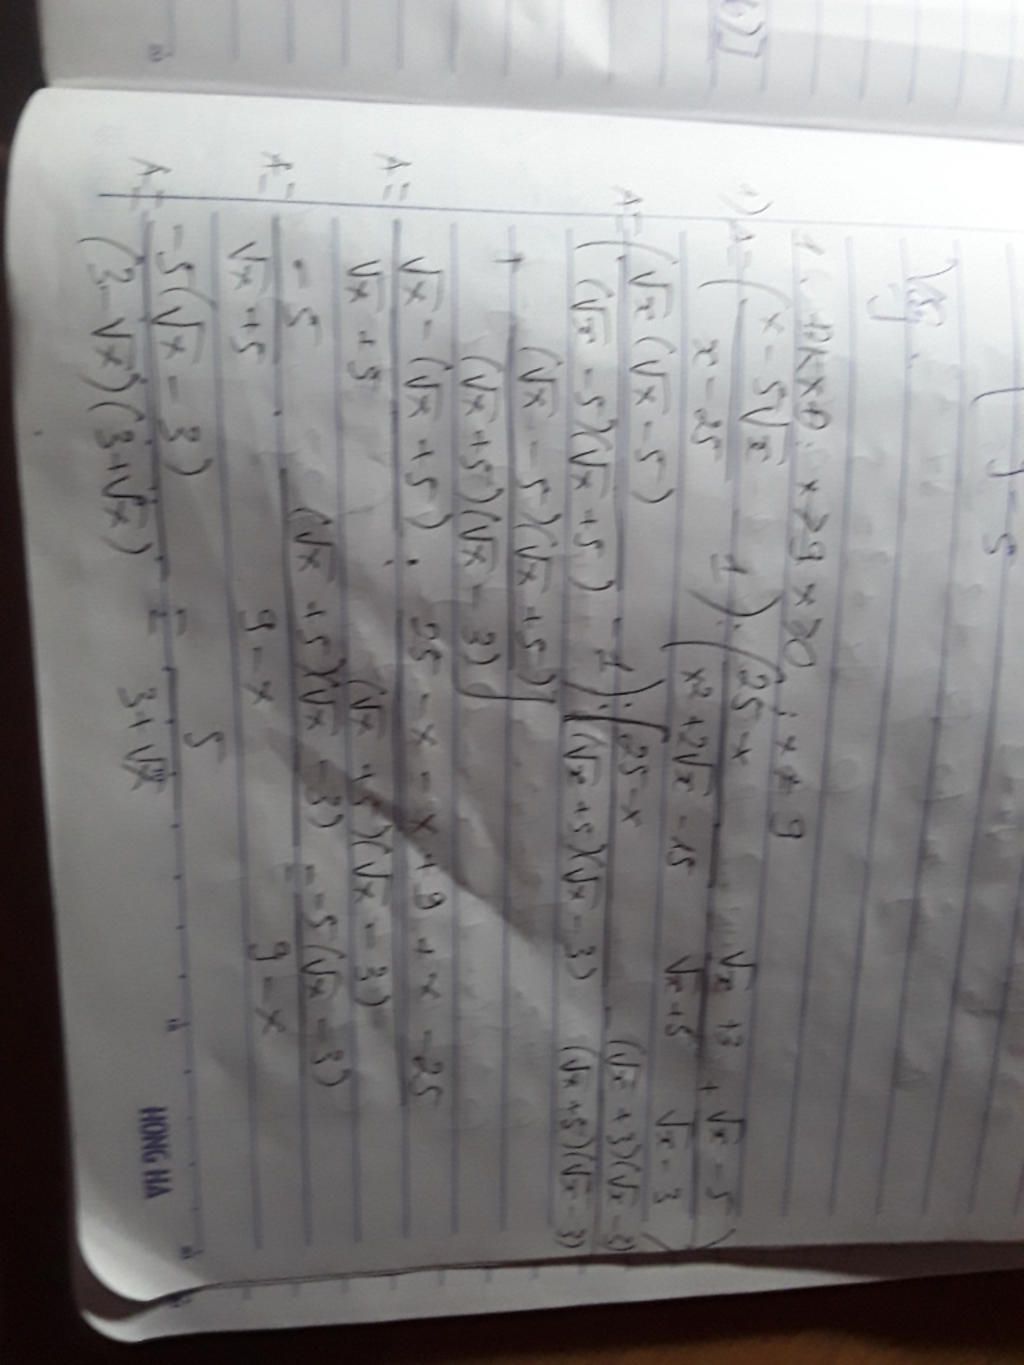 6)]
y = 5
Vậy
1 ĐKXĐ: x ≥ 9 x ≥ 0 ; x ≠ 9
a) A = ( (x - 5√x)/(x - 25) - 1 ) : ( (25 - x)/(x² + 2√x - 15) - (√x + 3)/(√x + 5) + (√x - 5)/(√x - 3) )
A = ( (√x (√x - 5))/((√x - 5)(√x + 5)) - 1 ) : [ (25 - x)/((√x + 5)(√x - 3)) - ((√x + 3)(√x - 3))/((√x + 5)(√x - 3))
+ ((√x - 5)(√x + 5))/((√x + 5)(√x - 3)) ]
A = (√x - (√x + 5))/(√x + 5) : (25 - x - x + 9 + x - 25)/((√x + 5)(√x - 3))
A = (-5)/(√x + 5) . ((√x + 5)(√x - 3))/(9 - x) = (-5(√x - 3))/(9 - x)
A = (-5(√x - 3))/((3 - √x)(3 + √x)) = 5/(3 + √x)
HONG HA